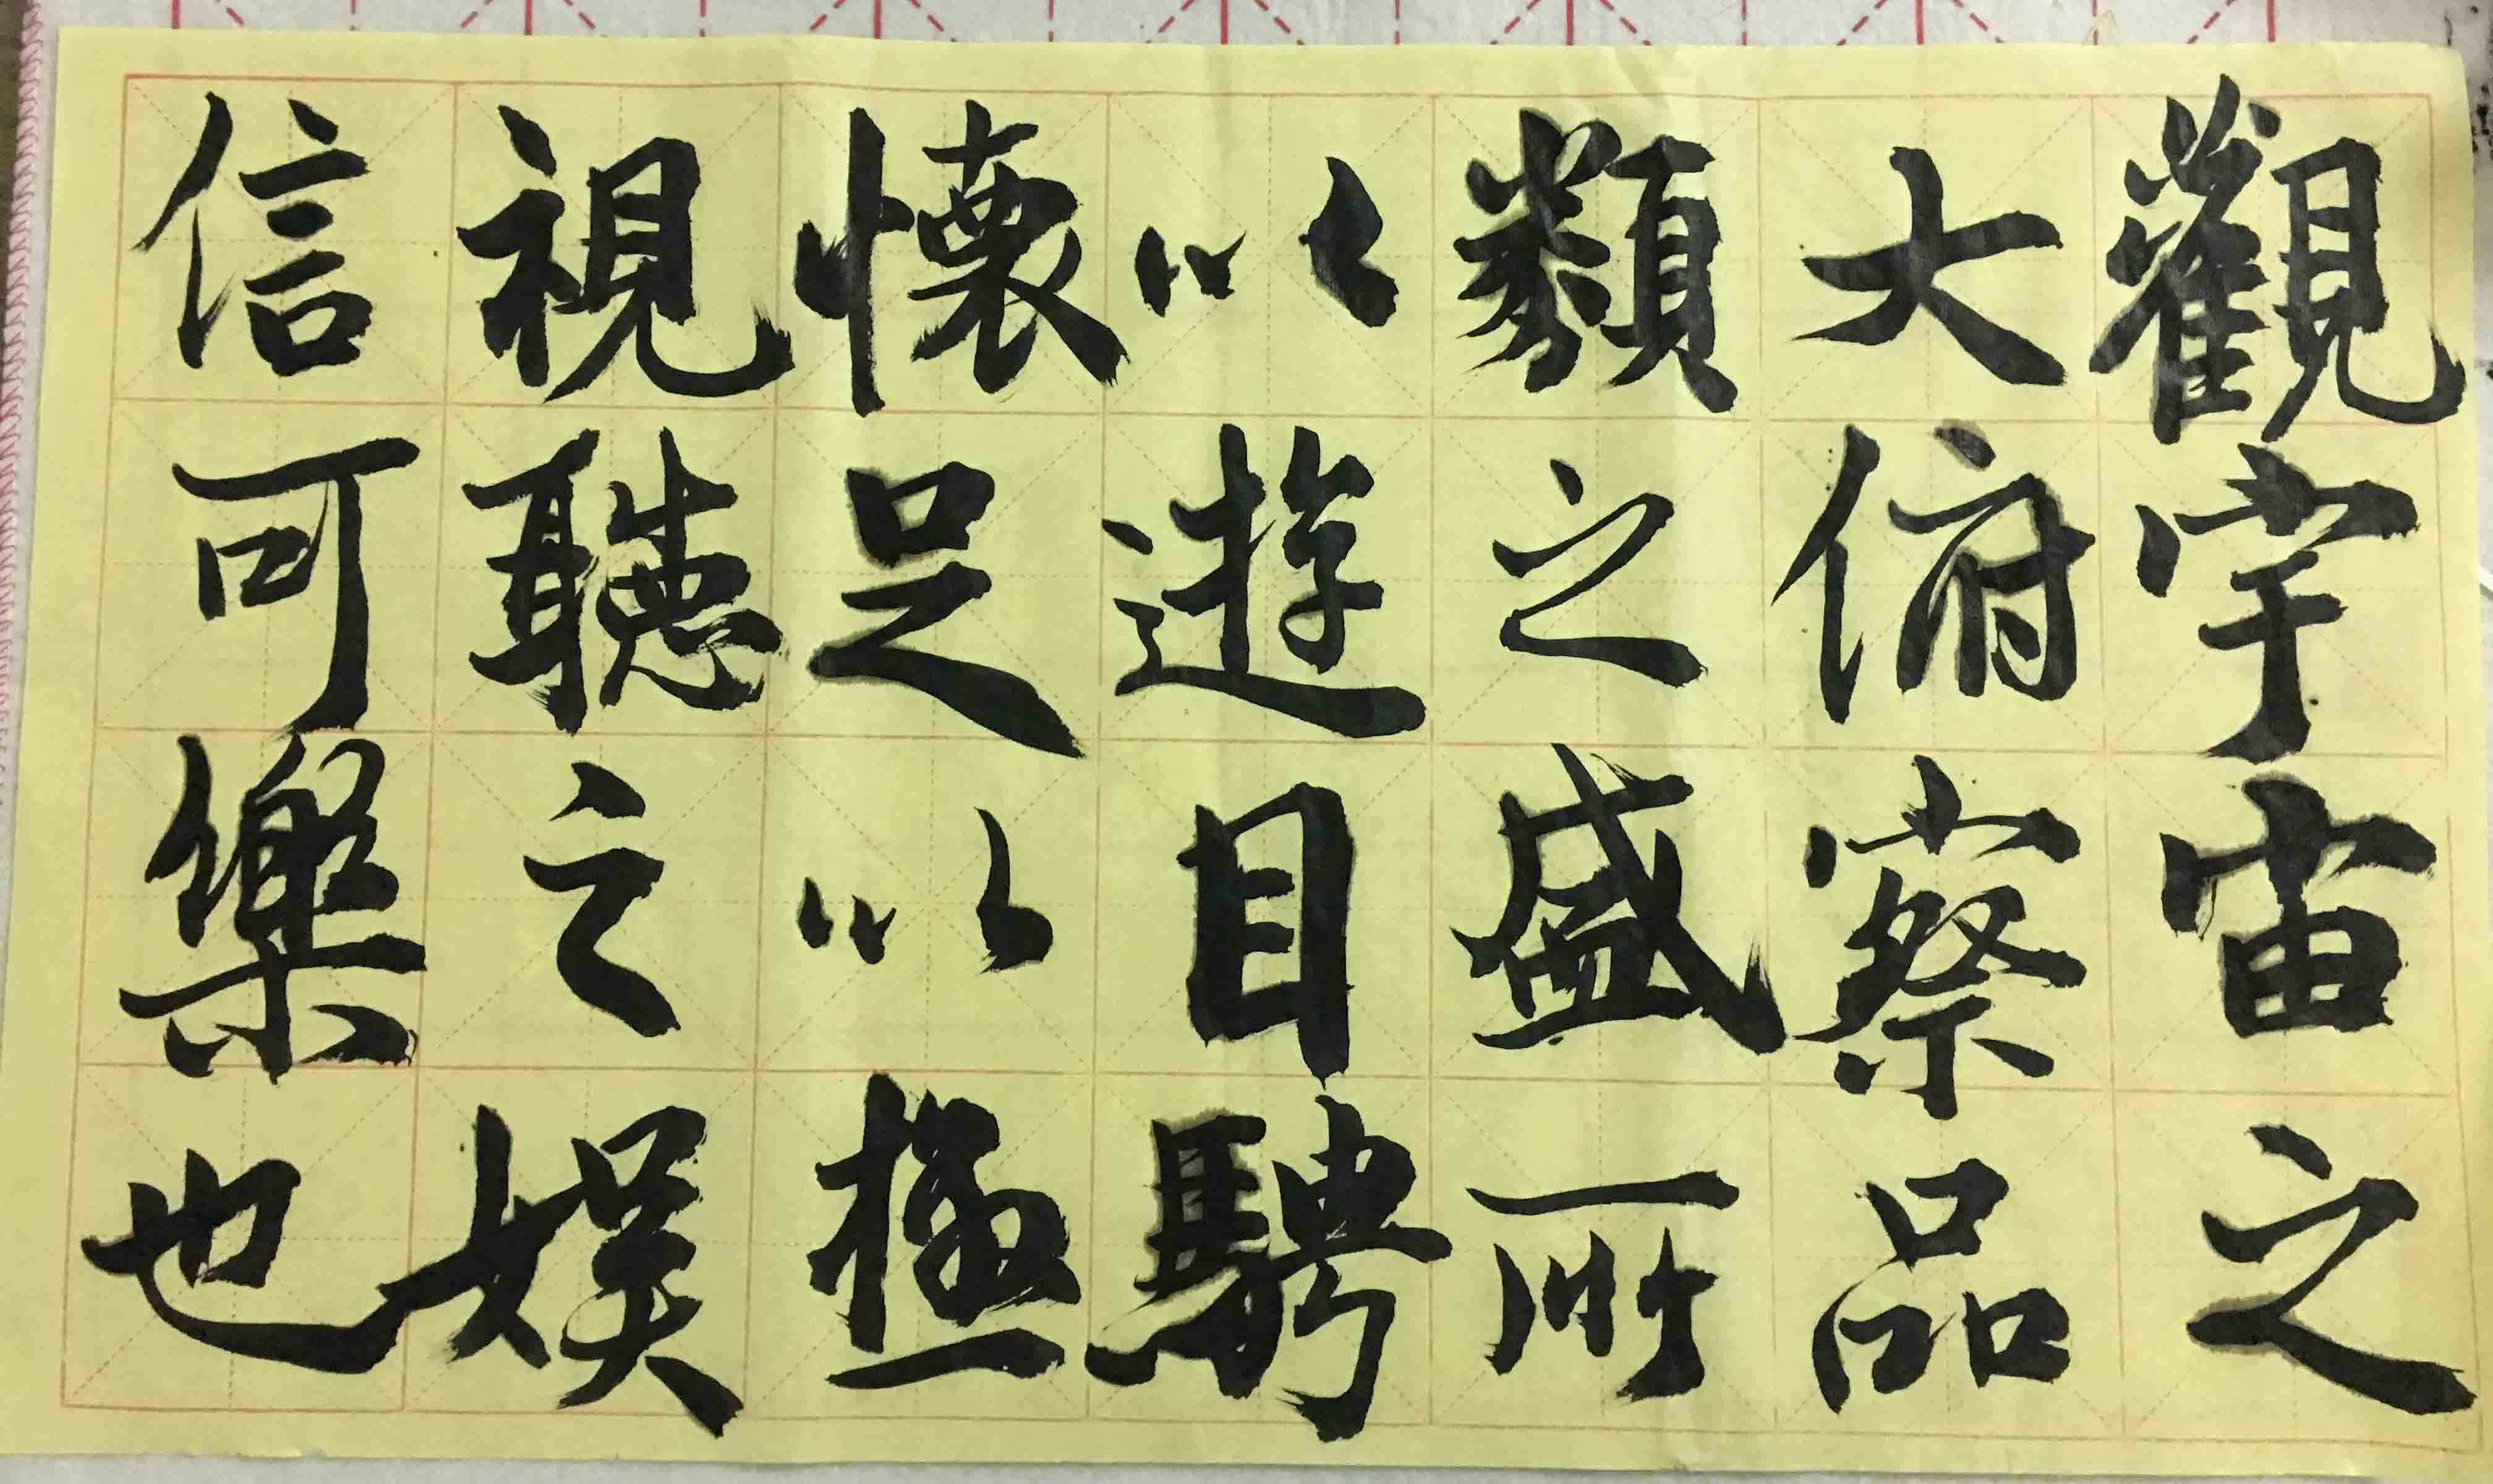 觀宇宙之
大俯察品
類之盛所
以遊目騁
懷足以極
視聽之娱
信可樂也